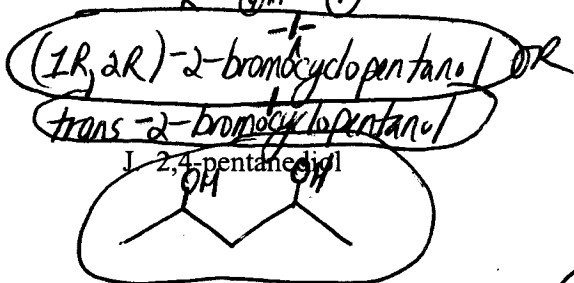 -1-
(1R, 2R)-2-bromocyclopentanol OR
trans-2-bromocyclopentanol
J. 2,4-pentanediol
OH OH